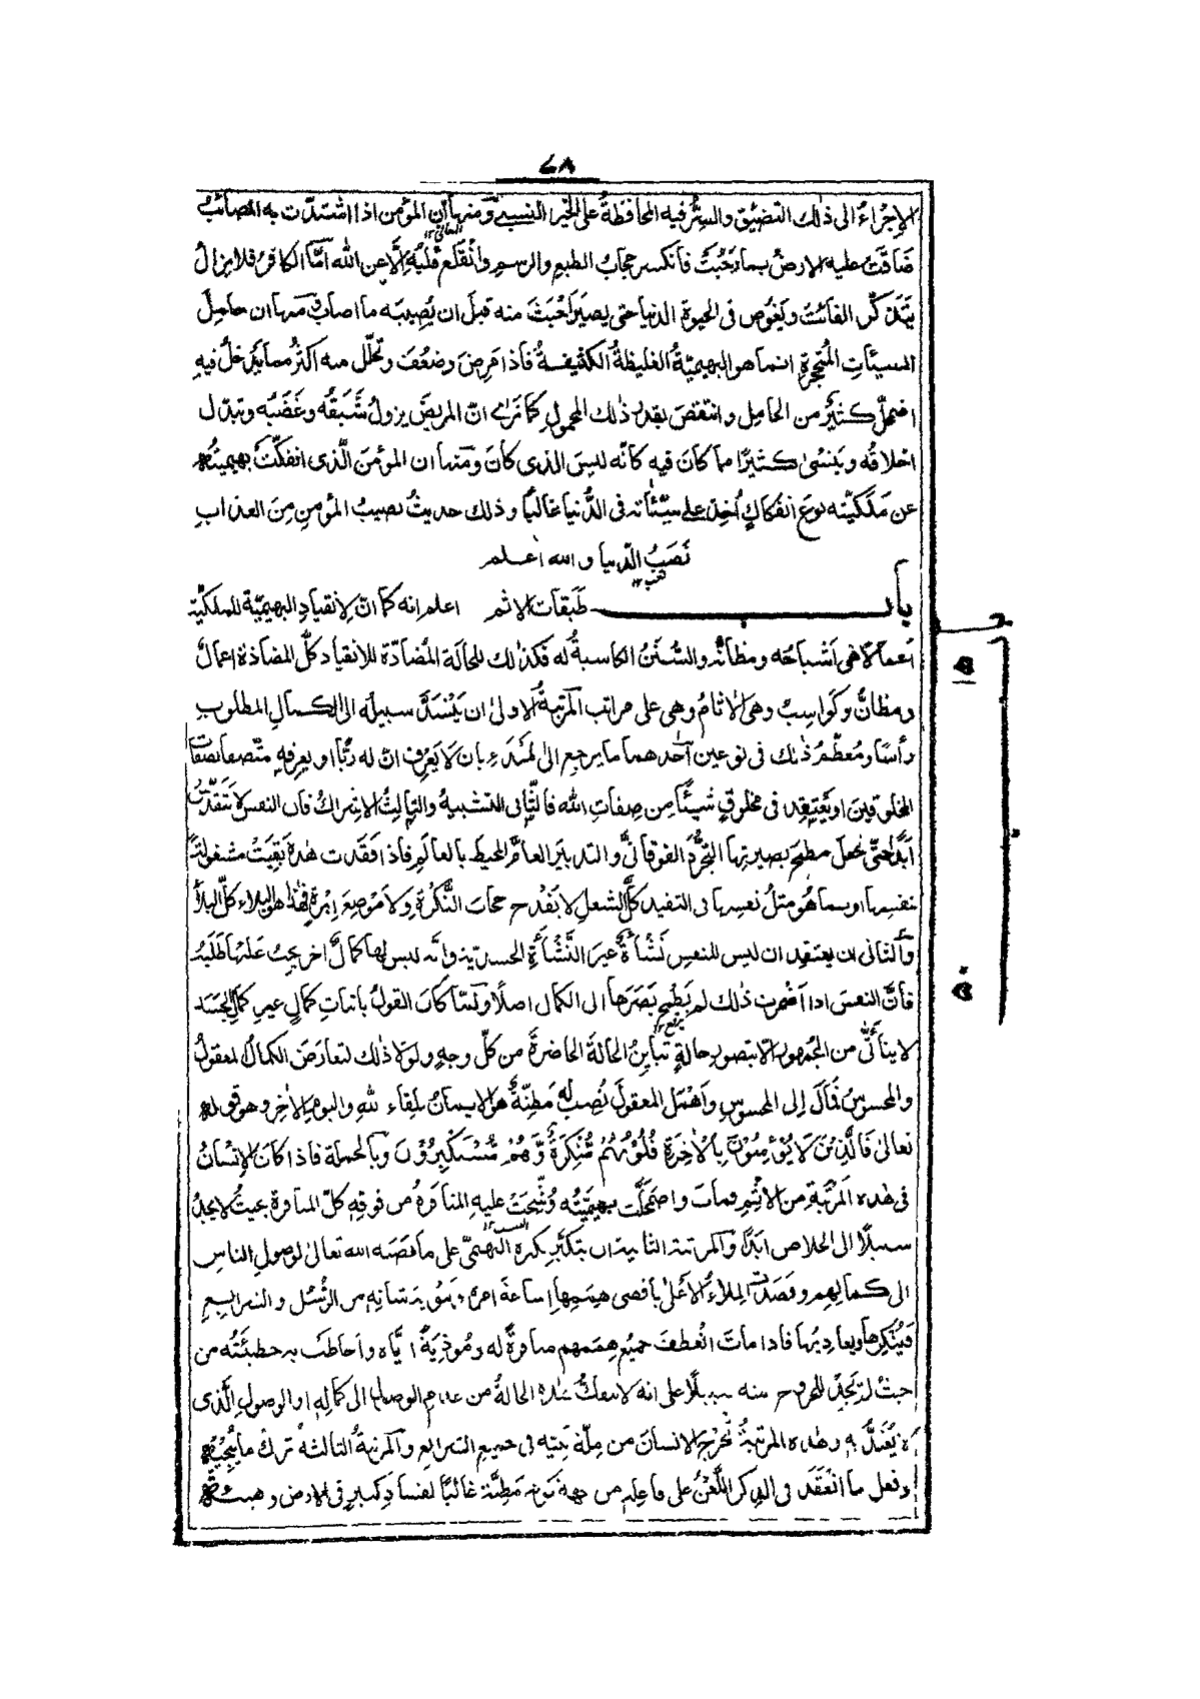 ٦٨
الاجزاء الى ذلك التضيق والسر فيه المحافظة على الخير النسبي ومنها ان المؤمن اذا اشتدت به المصائب
ضاقت عليه الارض بما رحبت فانكسر حجاب الطبع والرسم وانقلع قلبه الا عن الله اما الكافر فلا يزال
يتذكر الفائت ويغوص فى الحيوة الدنيا حتى يصير اخبث منه قبل ان يصيبه ما اصاب ومنها ان حامل
السيئات المتحجرة انما هو البهيمية الغليظة الكثيفة فاذا مرض وضعف وتحلل منه اكثر مما يدخل فيه
اضمحل كثير من الحامل وانتقص بقدر ذلك المحمول كما نرى ان المريض يزول شبقه وغضبه وتبدل
اخلاقه وينسى كثيرا مما كان فيه كانه ليس الذى كان ومنها ان المؤمن الذى انفكت بهيميته
عن ملكيته نوع انفكاك اخذ على سيئاته فى الدنيا غالبا وذلك حديث نصيب المؤمن من العذاب
نصب الدنيا والله اعلم
باب طبقات الاثم اعلم انه كما ان لانقياد البهيمية للملكية
اعمالا هى اشباحه ومظانه والسنن الكاسبة له فكذلك للحالة المضادة للانقياد كل المضادة اعمال
ومظان وكواسب وهى الاثام وهى على مراتب المرتبة الاولى ان ينسد سبيله الى الكمال المطلوب
رأسا ومعظم ذلك فى نوعين احدهما ما يرجع الى المبدء بان لا يعرف ان له ربا او يعرفه متصفا بصفات
المخلوقين او يعتقد فى مخلوق شيئا من صفات الله فالثانى التشبيه والثالث الاشراك فان النفس لا تتقدس
ابدا حتى تجعل مطمح بصيرتها التجرد الفوقانى والتدبير العام المحيط بالعالم فاذا فقدت هذه بقيت مشغولة
بنفسها او بما هو مثل نفسها فى التقيد كل الشغل لا يقدح حجاب النكرة ولا موضع ابرة فهذا هو البلاء كل البلاء
والثانى ان يعتقد ان ليس للنفس نشأة غير النشأة الجسدية وانه ليس لها كمال اخر يجب عليها طلبه
فان النفس اذا اضمرت ذلك لم يطمح بصرها الى الكمال اصلا ولما كان القول باثبات كمال غير كمال الجسد
لا يتأتى من الجمهور الا بتصور حالة تباين الحالة الحاضرة من كل وجه ولولا ذلك لتعارض الكمال المعقول
والمحسوس فمال الى المحسوس واهمل المعقول نصب له مظنة هو الايمان بلقاء الله واليوم الاخر وهو قوله
تعالى فَالَّذِينَ لَا يُؤْمِنُونَ بِالْآخِرَةِ قُلُوبُهُمْ مُنْكِرَةٌ وَهُمْ مُسْتَكْبِرُونَ وبالجملة فاذا كان الانسان
فى هذه المرتبة من الاثم فمات واضمحلت بهيميته رشحت عليه المنافرة من فوقه كل المنافرة بحيث لا يجد
سبيلا الى الخلاص ابدا والمرتبة الثانية ان يتكبر بكبره البهيمى على ما نصبه الله تعالى لوصول الناس
الى كمالهم وقصد الملاء الاعلى باقصى هممها اشاعة امره وتنويه شانه من الرسل والشرايع
فينكرها ويعاديها فاذا مات انعطف جميع هممهم منافرة له ومؤذية اياه واحاطت به خطيئته من
حيث لم يجد للخروج منه سبيلا على انه لا تنفك هذه الحالة من عدم الوصول الى كماله او الوصول الذى
لا يعتد به وهذه المرتبة تخرج الانسان من ملة نبيه فى جميع الشرايع والمرتبة الثالثة ترك ما ينجيه
وفعل ما انعقد فى الذكر اللعن على فاعله من جهة كونه مظنة غالبا لفساد كبير فى الارض وهيئة